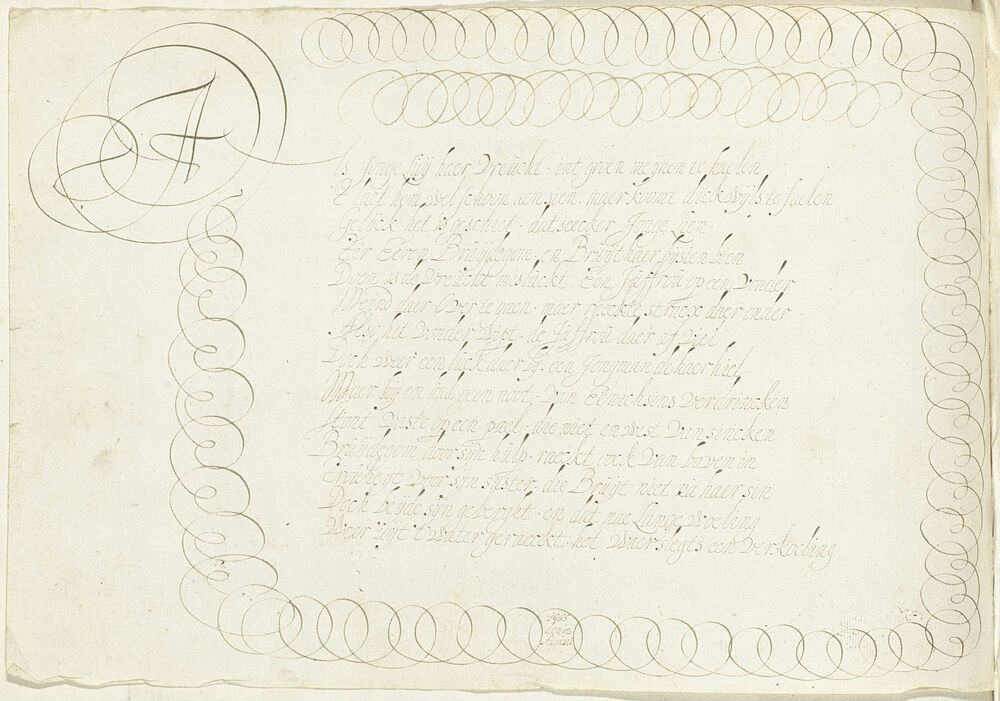 A
ls Jonge luij haer Vreucht int groen meijnen te haelen
T laet hem wel schoon aensien maer koomt dickwijls te faelen
Gelijck het is geschiet dat seecker Jonge lien
Ter Eeren Bruijdegom en Bruijt haer bijsien bien
Doen is de Vreucht mislückt Een Jüffroü op een Vonder
Meijnd daer Over te gaen maer raeckte straex daer onder
Also het Vonder wipt de Jüffroü daer af Viel
Doch Weer een lück daer bij een Jongman de haer hiel
Maer hij en hul geen noot Van Eenichsins Verdrincken
Stont Vaste op een pael die niet en wist Van sincken
Bruijdegom door sijn hulp raeckt oock Van boven in
Trouheijt Voor sijn süster die Bruijt niet na haer sin
Doch beijde sijn geberght en dat nae lange Woeling
Weer uijt t Water geraeckt het Waer slegts een Verkoeling
1655